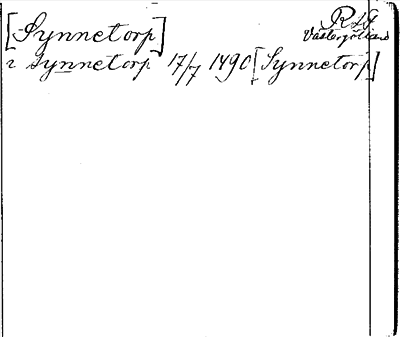 [Synnetorp]
Västergötland
i Synnetorp 17/7 1490 [Synnetorp]